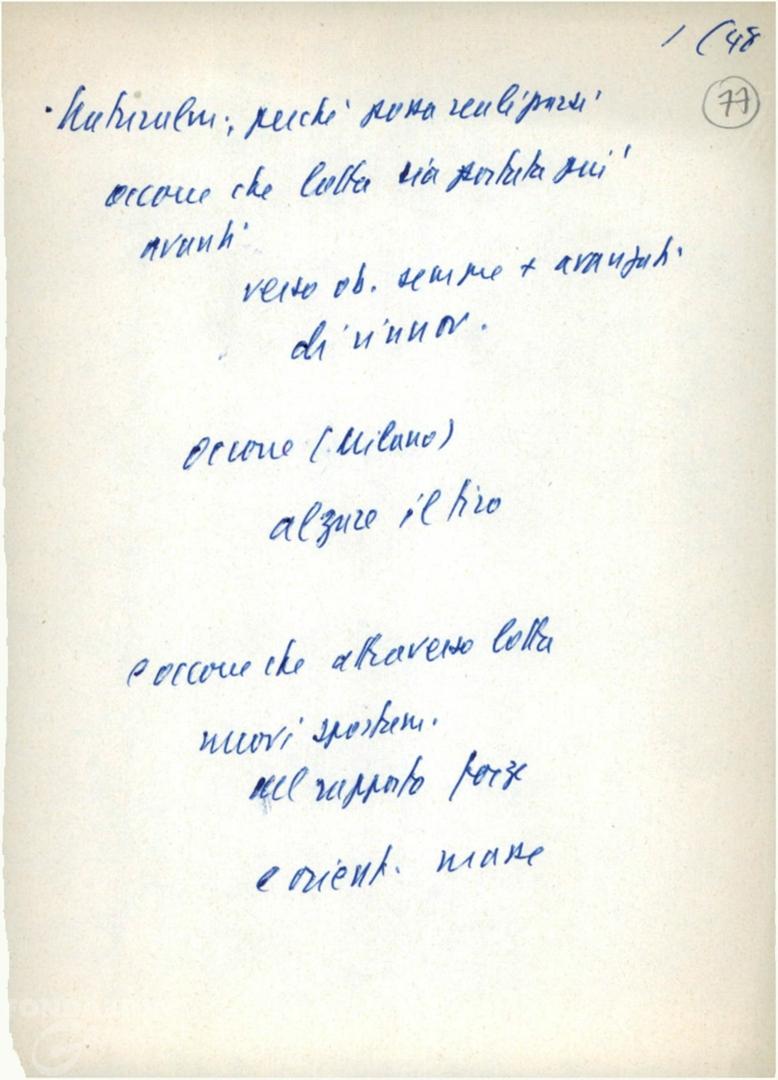 1 (48
77
· Naturalm., perché possa realizzarsi
occorre che lotta sia portata più
avanti
verso ob. sempre + avanzati
di rinnov.
occorre (Milano)
alzare il tiro
e occorre che attraverso lotta
nuovi spostam.
nel rapporto forze
e orient. masse